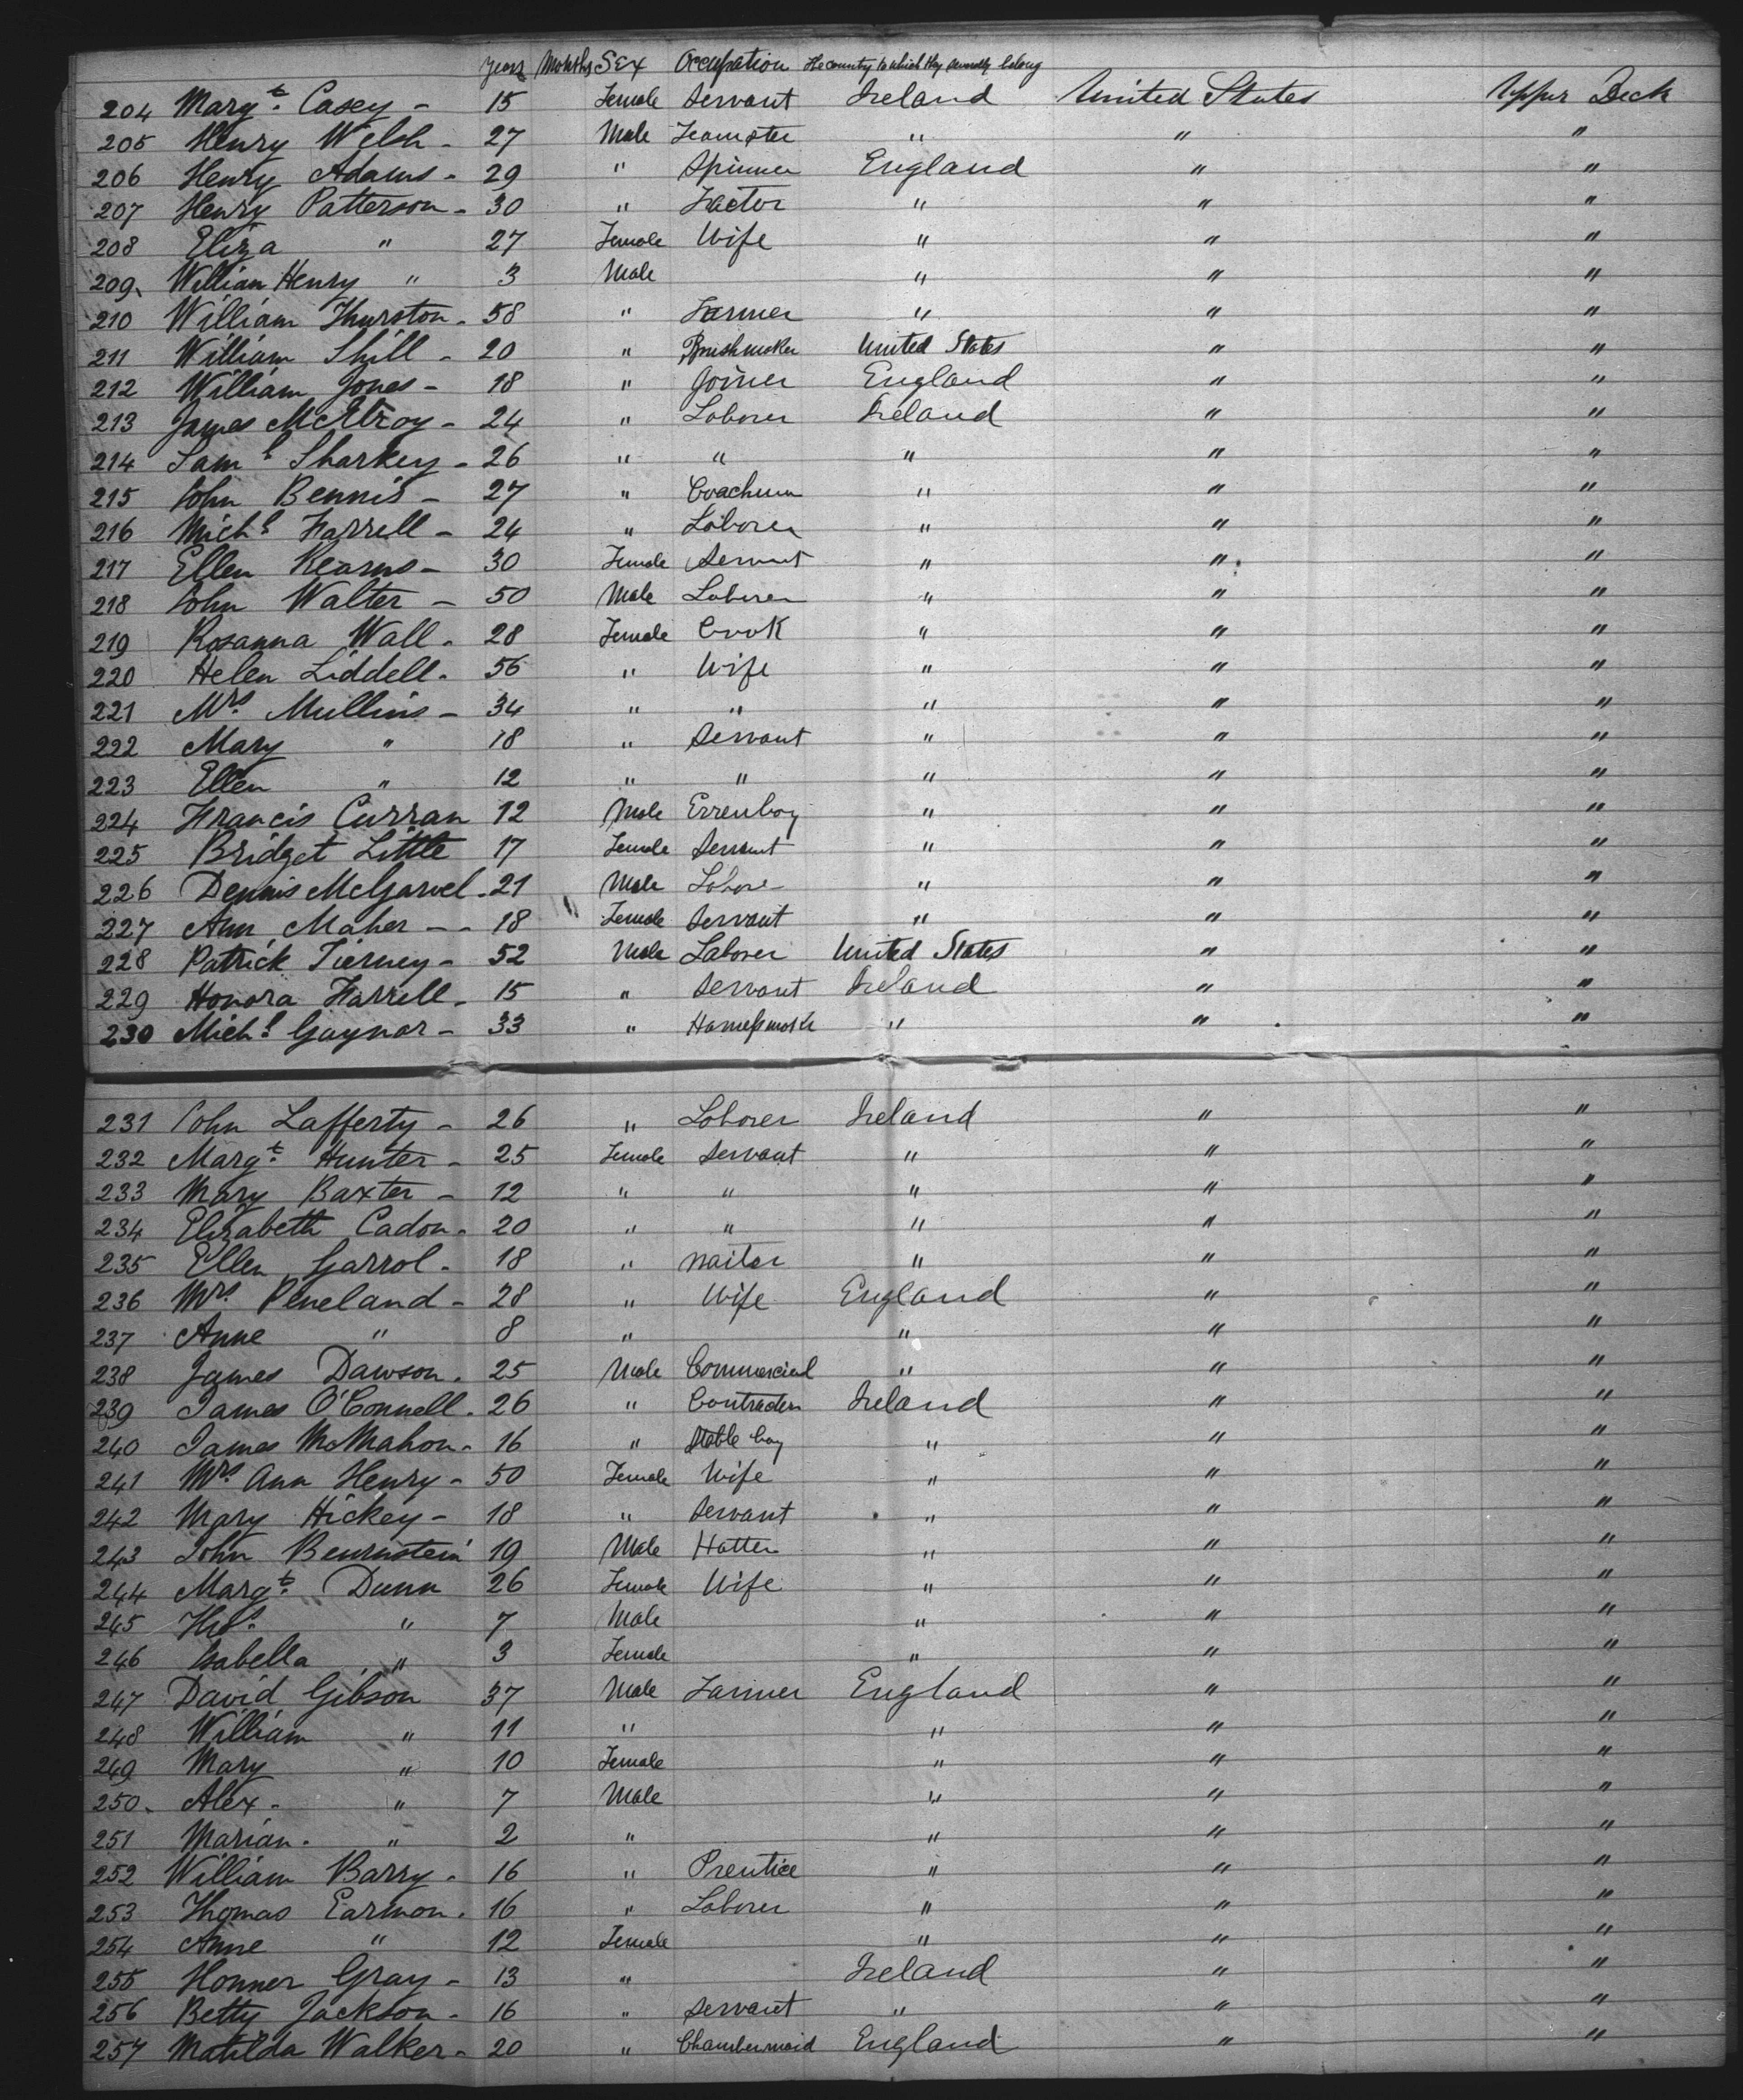 Years Months Sex Occupation The country to which they severally belong
204 Margt. Casey - 15 Female Servant Ireland United States Upper Deck
205 Henry Welsh - 27 Male Teamster " " "
206 Henry Adams - 29 " Spinner England " "
207 Henry Patterson - 30 " Factor " " "
208 Eliza " 27 Female Wife " " "
209. William Henry " 3 Male " " "
210 William Thurston - 58 " Farmer " " "
211 William Shill - 20 " Brushmaker United States " "
212 William Jones - 18 " Joiner England " "
213 James McElroy - 24 " Laborer Ireland " "
214 Saml. Sharkey - 26 " " " " "
215 John Bennis - 27 " Coachman " " "
216 Michl. Farrell - 24 " Laborer " " "
217 Ellen Kearns - 30 Female Servant " " "
218 John Walter - 50 Male Laborer " " "
219 Rosanna Wall - 28 Female Cook " " "
220 Helen Liddell - 56 " Wife " " "
221 Mrs. Mullins - 34 " " " " "
222 Mary " 18 " Servant " " "
223 Ellen " 12 " " " " "
224 Francis Curran 12 Male Errenboy " " "
225 Bridget Little 17 Female Servant " " "
226 Dennis McGarvel - 21 Male Labore " " "
227 Ann Maher - - 18 Female Servant " " "
228 Patrick Tierney - 52 Male Laborer United States " "
229 Honora Farrell - 15 " Servant Ireland " "
230 Michl. Gaynor - 33 " " " "
231 John Lafferty - 26 " Laborer Ireland " "
232 Margt. Hunter - 25 Female Servant " " "
233 Mary Baxter - 12 " " " " "
234 Elizabeth Cadon - 20 " " " " "
235 Ellen Garrol - 18 " Waiter " " "
236 Mrs. Peneland - 28 " Wife England " "
237 Anne " 8 " " " "
238 James Dawson - 25 Male Commercial " " "
239 James O'Connell - 26 " Contractor Ireland " "
240 James McMahon - 16 " Stable boy " " "
241 Mrs. Ann Henry - 50 Female Wife " " "
242 Mary Hickey - 18 " Servant " " "
243 John Beurnstein 19 Male Hatter " " "
244 Margt. Dunn 26 Female Wife " " "
245 Thos. " 7 Male " " "
246 Isabella " 3 Female " " "
247 David Gibson 37 Male Farmer England " "
248 William " 11 " " " "
249 Mary " 10 Female " " "
250. Alex. " 7 Male " " "
251 Marian. " 2 " " " "
252 William Barry - 16 " Prentice " " "
253 Thomas Earmon - 16 " Laborer " " "
254 Anne " 12 Female " " "
255 Honner Gray - 13 " Ireland " "
256 Betty Jackson - 16 " Servant " " "
257 Matilda Walker - 20 " Chambermaid England " "